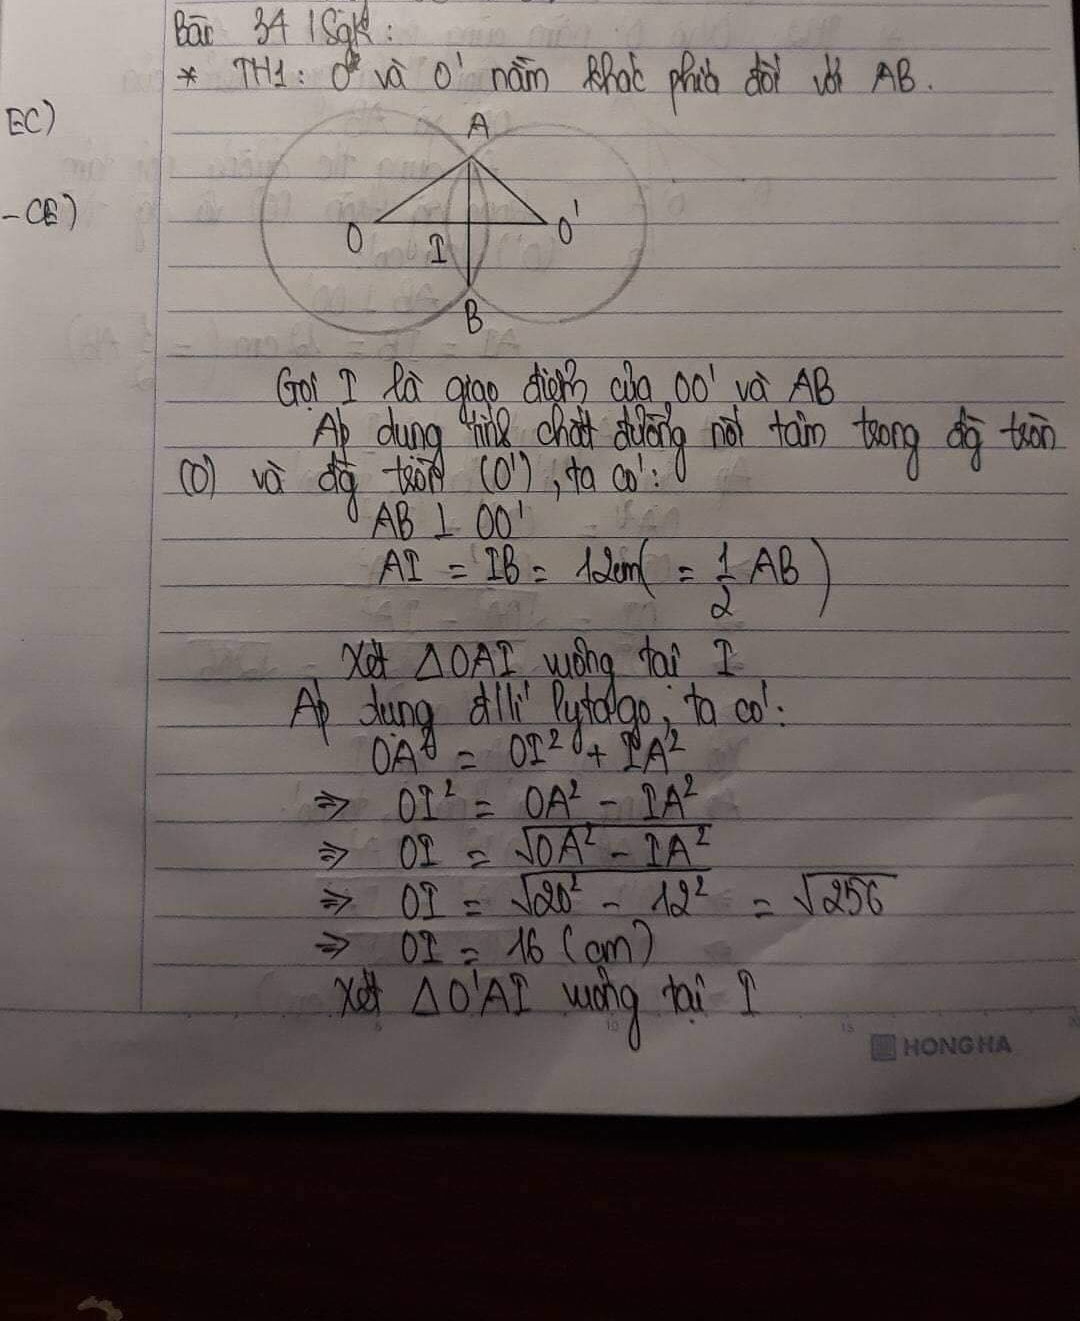 Bài 34 | Sgk:
* TH1: O và O' nằm khác phía đối với AB.
EC)
- CE)
A
O
I
O'
B
Gọi I là giao điểm của OO' và AB
Áp dụng tính chất đường nối tâm trong đg tròn
(O) và đg tròn (O'), ta có:
AB ⊥ OO'
AI = IB = 12cm ( = 1/2 AB )
Xét ΔOAI vuông tại I
Áp dụng đ/lí Pytago, ta có:
OA² = OI² + IA²
⇒ OI² = OA² - IA²
⇒ OI = √(OA² - IA²)
⇒ OI = √(20² - 12²) = √256
⇒ OI = 16 (cm)
Xét ΔO'AI vuông tại I
5 10 15
HONG HA